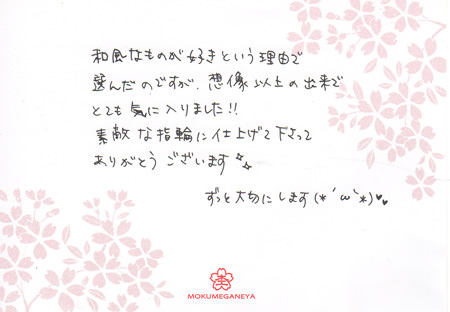 和風なものが好きという理由で
選んだのですが、想像以上の出来で
とても気に入りました!!
素敵な指輪に仕上げて下さって
ありがとうございます
ずっと大切にします(*´ω`*)♥♥
MOKUMEGANEYA